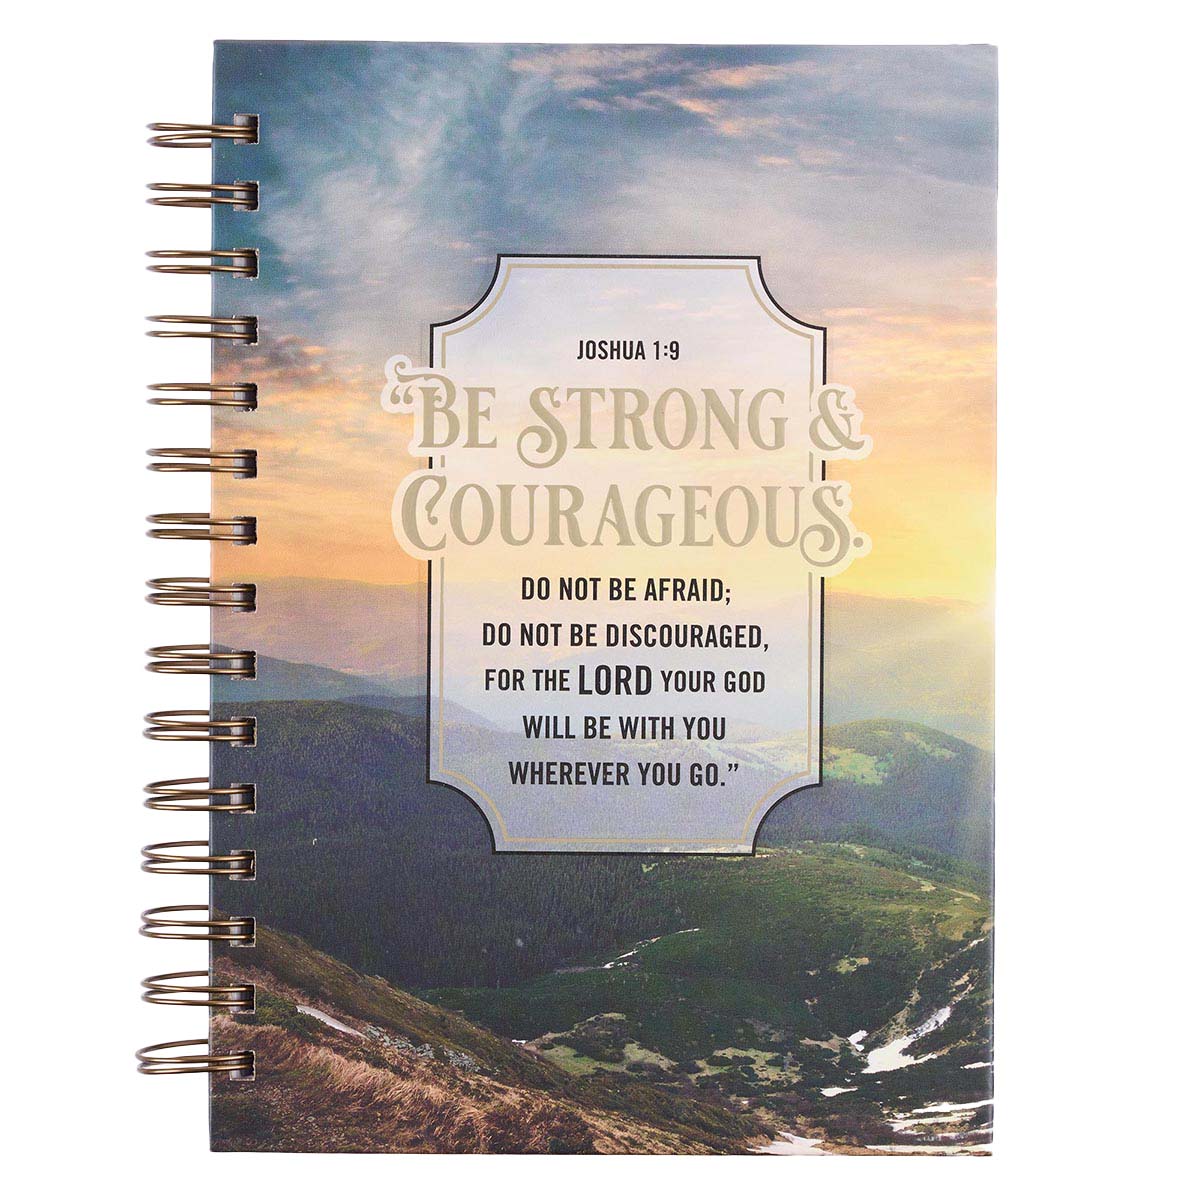 JOSHUA 1:9
“BE STRONG &
COURAGEOUS.
DO NOT BE AFRAID;
DO NOT BE DISCOURAGED,
FOR THE LORD YOUR GOD
WILL BE WITH YOU
WHEREVER YOU GO.”